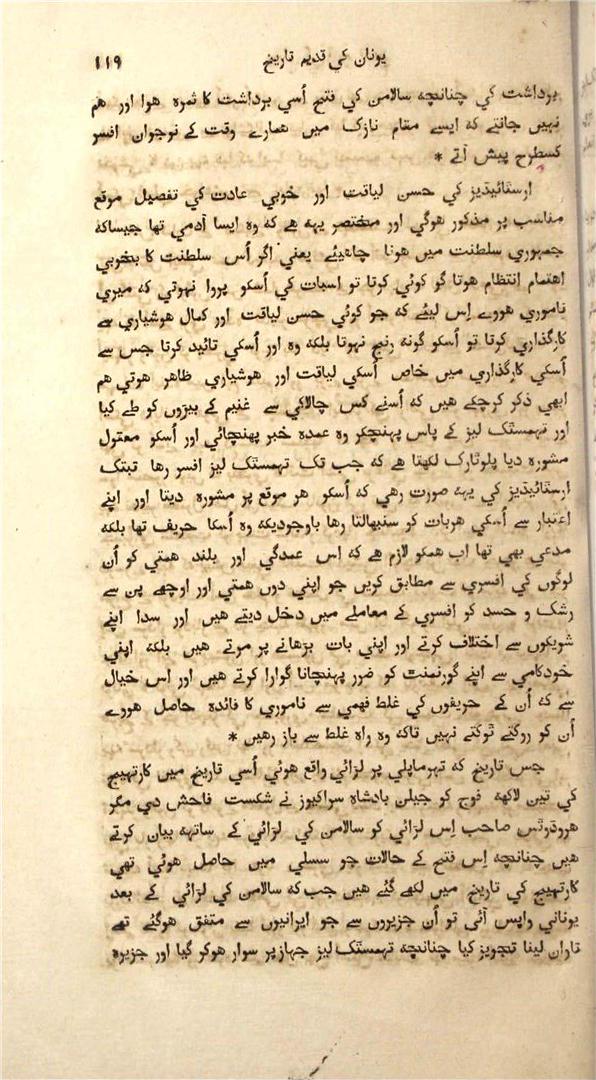 یونان کی قدیم تاریخ ۱۱۹
برداشت کی چنانچہ سالامن کی فتح اُسی برداشت کا ثمرہ ہوا اور ہم
نہیں جانتے کہ ایسے مقام نازک میں ہمارے وقت کے نوجوان افسر
کسطرح پیش آتے *
ارسٹائیڈیز کی حسن لیاقت اور خوبی عادت کی تفصیل موقع
مناسب پر مذکور ہوگی اور مختصر یہہ ہے کہ وہ ایسا آدمی تھا جیساکہ
جمہوری سلطنت میں ہونا چاہیئے یعنی اگر اُس سلطنت کا بخوبی
اہتمام انتظام ہوتا گو کوئی کرتا تو اسبات کی اُسکو پروا نہوتی کہ میری
ناموری ہووے اِس لیئے کہ جو کوئی حسن لیاقت اور کمال ہوشیاری سے
کارگذاری کرتا تو اُسکو گونہ رنج نہوتا بلکہ وہ اور اُسکی تائید کرتا جس سے
اُسکی کارگذاری میں خاص اُسکی لیاقت اور ہوشیاری ظاہر ہوتی ہم
ابھی ذکر کرچکے ہیں کہ اُسنے کس چالاکی سے غنیم کے بیڑوں کو طے کیا
اور تہمسٹک لیز کے پاس پہنچکر وہ عمدہ خبر پہنچائی اور اُسکو معقول
مشورہ دیا پلوٹارک لکھتا ہے کہ جب تک تہمسٹک لیز افسر رہا تبتک
ارسٹائیڈیز کی یہہ صورت رہی کہ اُسکو ہر موقع پر مشورہ دیتا اور اپنے
اعتبار سے اُسکی ہربات کو سنبھالتا رہا باوجودیکہ وہ اُسکا حریف تھا بلکہ
مدعی بھی تھا اب ہمکو لازم ہے کہ اِس عمدگی اور بلند ہمتی کو اُن
لوگوں کی افسری سے مطابق کریں جو اپنی دوں ہمتی اور اوچھے پن سے
رشک و حسد کو افسری کے معاملے میں دخل دیتے ہیں اور سدا اپنے
شریکوں سے اختلاف کرتے اور اپنی بات بڑھانے پر مرتے ہیں بلکہ اپنی
خودکامی سے اپنے گورنمنٹ کو ضرر پہنچانا گوارا کرتے ہیں اور اس خیال
سے کہ اُن کے حریفوں کی غلط فہمی سے ناموری کا فائدہ حاصل ہووے
اُن کو روکتے ٹوکتے نہیں تاکہ وہ راہ غلط سے باز رہیں *
جس تاریخ کہ تہرماپلی پر لڑائی واقع ہوئی اُسی تاریخ میں کارتہیج
کی تین لاکھہ فوج کو جیلن بادشاہ سراکیوز نے شکست فاحش دی مگر
ہروڈوٹس صاحب اِس لڑائی کو سالامن کی لڑائی کے ساتھہ بیان کرتے
ہیں چنانچہ اِس فتح کے حالات جو سسلی میں حاصل ہوئی تھی
کارتہیج کی تاریخ میں لکھے گئے ہیں جب کہ سالامن کی لڑائی کے بعد
یونانی واپس آئی تو اُن جزیروں سے جو ایرانیوں سے متفق ہوگئے تھے
تاوان لینا تجویز کیا چنانچہ تہمسٹک لیز جہاز پر سوار ہوکر گیا اور جزیرہ